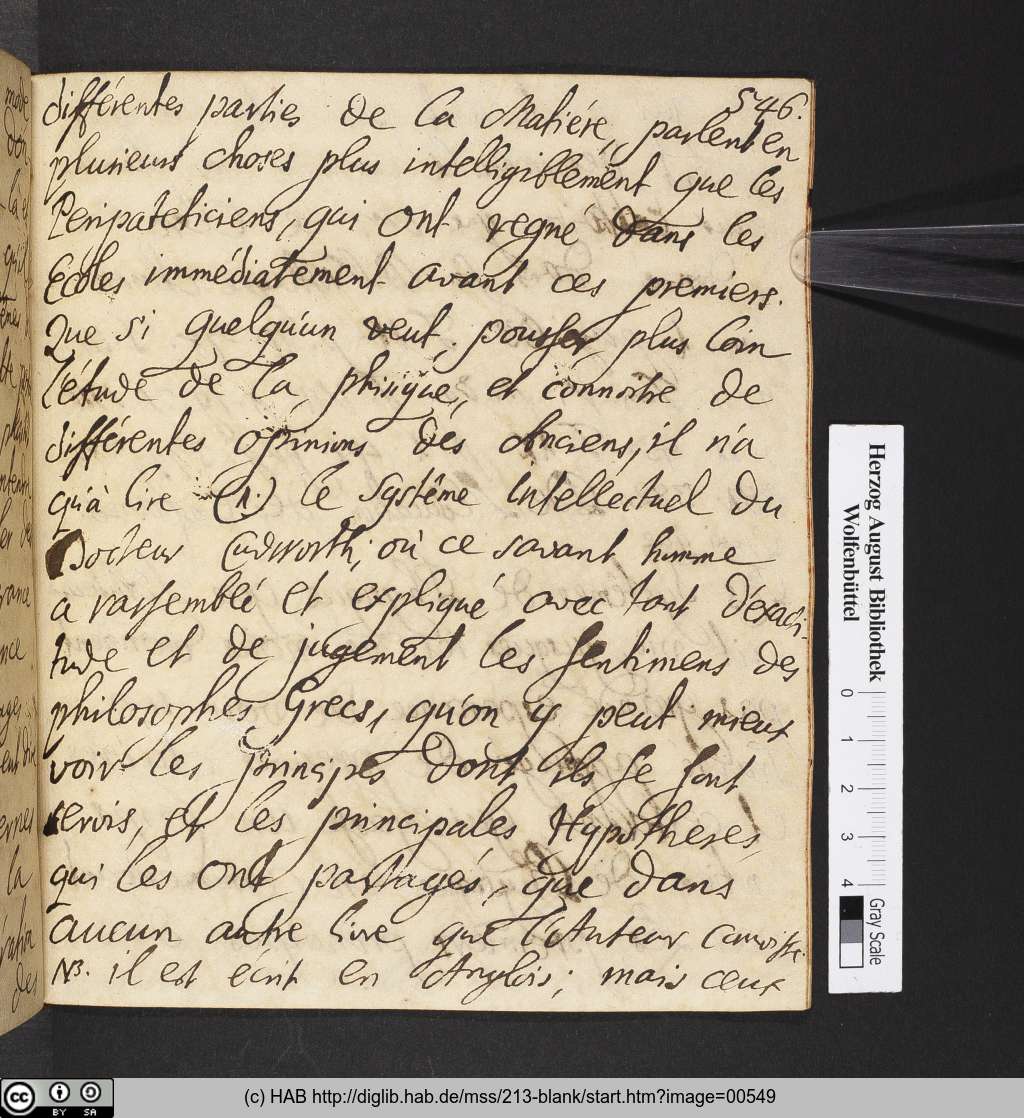 546.
différentes parties de la Matiére, parlent en
plusieurs choses plus intelligiblement que les
Peripateticiens, qui ont regné dans les
Ecoles immédiatement avant ces premiers.
Que si quelqu'un veut pousser plus loin
l'étude de la phisique, et connoitre de
différentes opinions des Anciens, il n'a
qu'à lire (n.) le Systême intellectuel du
Docteur Cudworth; où ce savant homme
a rassemblé et expliqué avec tant d'exacti-
tude et de jugement les sentimens des
philosophes Grecs, qu'on y peut mieux
voir les principes dont ils se sont
servis, et les principales Hypotheses,
qui les ont partagés, que dans
aucun autre livre que l'Auteur connoisse.
NB. il est écrit en Anglois; mais ceux
mode
la
des
Herzog August Bibliothek
Wolfenbüttel
0 1 2 3 4
Gray Scale
cc BY SA
(c) HAB http://diglib.hab.de/mss/213-blank/start.htm?image=00549